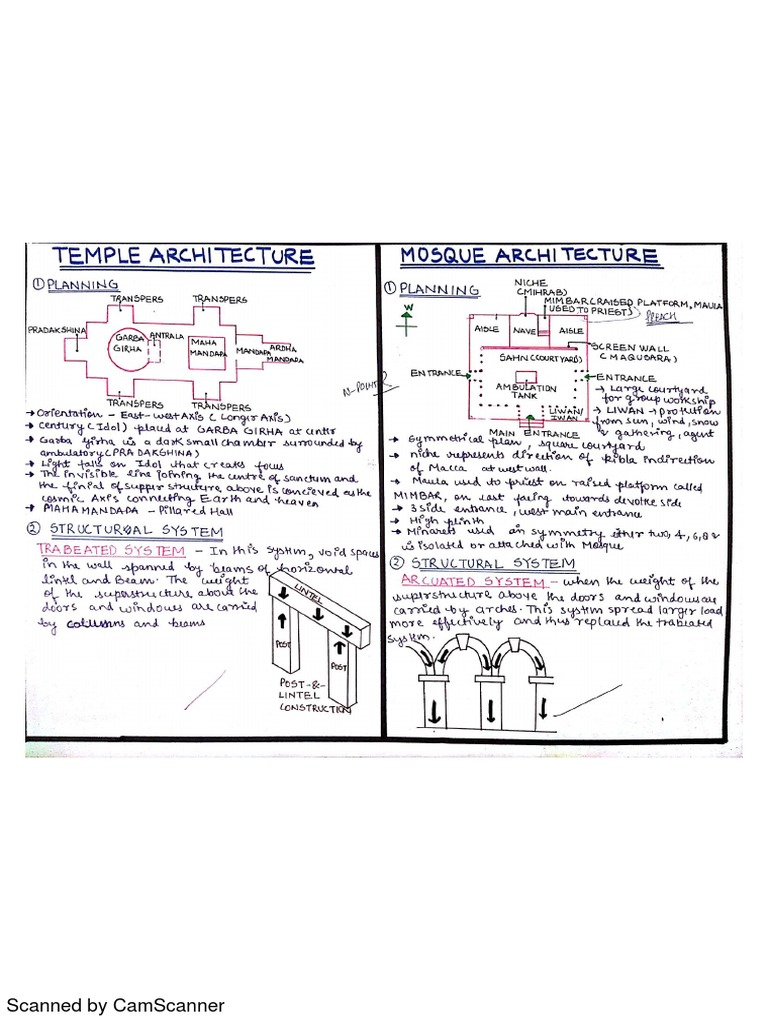 TEMPLE ARCHITECTURE
① PLANNING
TRANSPERS
TRANSPERS
PRADAKSHINA
GARBA
GIRHA
ANTRALA
MAHA
MANDAPA
MANDAPA
ARDHA
MANDAPA
TRANSPERS
TRANSPERS
→ Orientation - East-west Axis (Longer Axis)
→ century (Idol) placed at GARBA GIRHA at centr
→ Garba Girha is a dark small chamber surrounded by
ambulatory (PRADAKSHINA)
→ Light falls on Idol that creats focus
→ The invisible line joining the centre of sanctum and
the finial of supper structure above is concieved as the
cosmic Axis connecting Earth and heaven
→ MAHA MANDAPA - Pillared Hall
② STRUCTURAL SYSTEM
TRABEATED SYSTEM - In this system, void spaces
in the wall spanned by beams of horizontal
lintel and Beam. The weight
of the superstructure about the
doors and windows are carried
by columns and beams
LINTEL
POST
POST
POST-&-
LINTEL
CONSTRUCTION
MOSQUE ARCHITECTURE
① PLANNING
W
NICHE
(MIHRAB)
MIMBAR (RAISED PLATFORM, MAULA
USED TO PRIEST)
PREACH
AISLE
NAVE
AISLE
SCREEN WALL
(MAQUSARA)
SAHN (COURTYARD)
ENTRANCE
ENTRANCE
AMBULATION
TANK
LIWAN/
IWAN
MAIN ENTRANCE
→ Large courtyard
for group workship
→ LIWAN → protution
from sun, wind, snow
& gathering, agent
N-POINT?
→ Symmetrical plan, square courtyard
→ niche represents direction of kibla indirection
of Macca at west wall.
→ Maula used to priest on raised platform called
MIMBAR, on east facing towards devotke side
→ 3 side entrance, west main entrance
→ High plinth
→ Minarets used on symmetry either two, 4, 6, 8 &
is isolated or attached with Mosque
② STRUCTURAL SYSTEM
ARCUATED SYSTEM - when the weight of the
superstructure above the doors and windows are
carried by arches. This system spread larger load
more effectively and thus replaced the trabeated
system.
Scanned by CamScanner